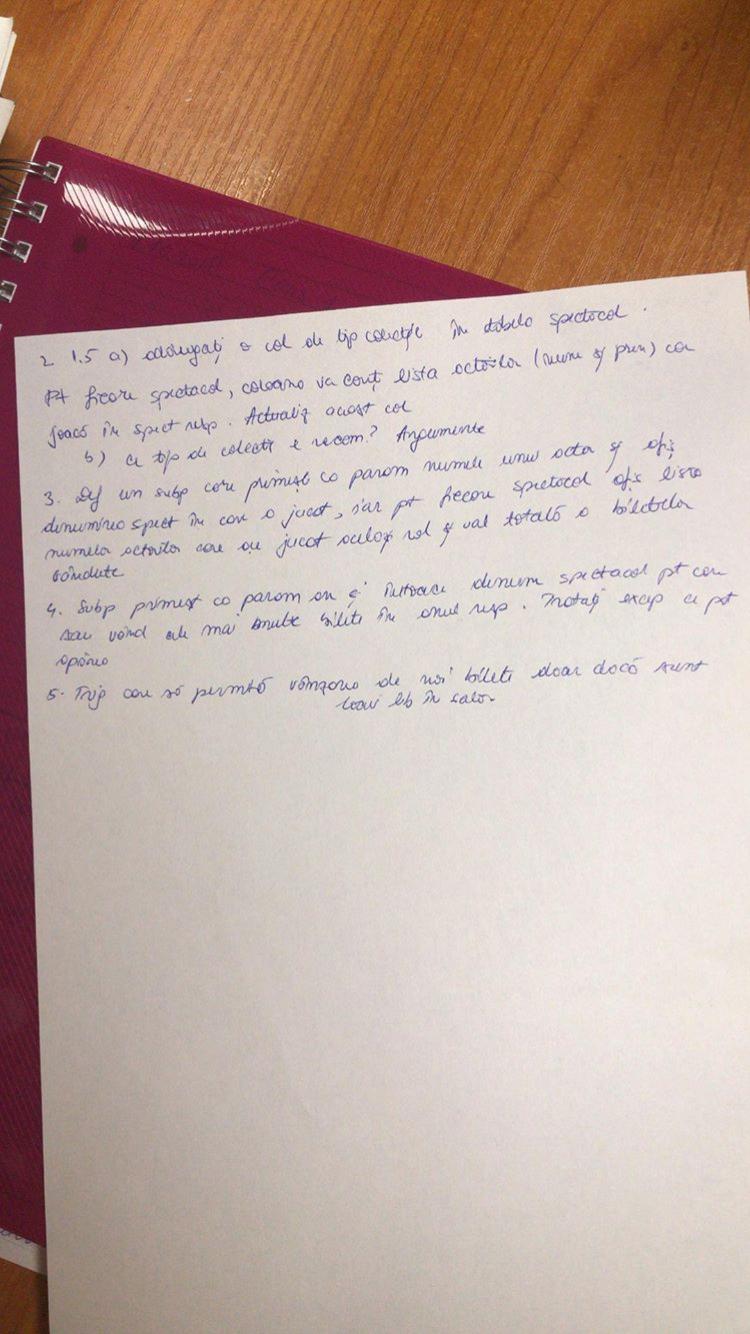 2 1.5 a) adăugați o col de tip colecție în tabelo spectacol.
Pt fiecare spectacol, coloana va conț lista actorilor (nume și pren) care
joacă în spect resp. Actualiz acest col
b) ce tip de colecție e recom? Argumente
3. Def un subp care primește ca param numele unui actor și afiș
denumirea spect în care a jucat, iar pt fiecare spectacol afiș lista
numelor actorilor care au jucat același rol și val totală a biletelor
vândute
4. Subp primește ca param an și întoarce denum spectacol pt care
sau vând cele mai multe bilete în anul resp. Tratați excep ce pot
apărea
5. Trig care să permită vânzarea de noi bilete doar dacă sunt
locuri lib în sală.